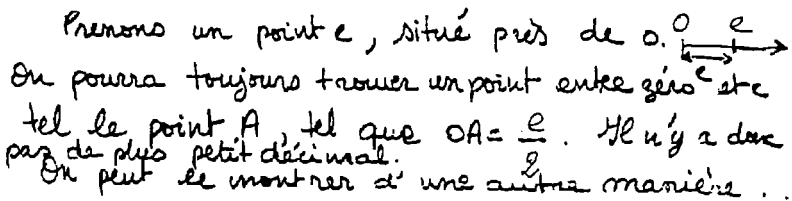 Prenons un point e, situé près de 0. O e
On pourra toujours trouver un point entre zéro et e
e
tel le point A, tel que OA = e/2. Il n'y a donc
pas de plus petit décimal.
On peut le montrer d'une autre manière...